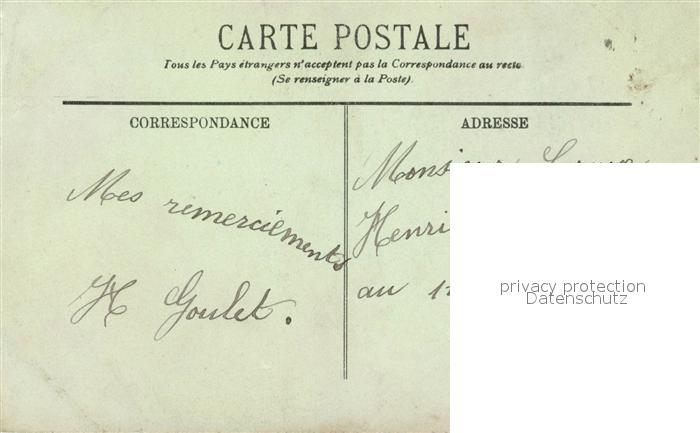 CARTE POSTALE
Tous les Pays étrangers n'acceptent pas la Correspondance au recto
(Se renseigner à la Poste).
CORRESPONDANCE
Mes remerciements
H Goulet.
ADRESSE
Monsieur
Henri
au
privacy protection
Datenschutz